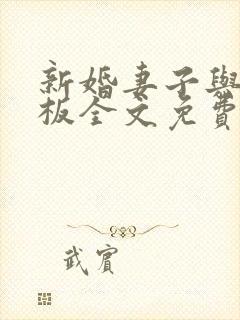 新婚妻子與
板全文免費
武賓